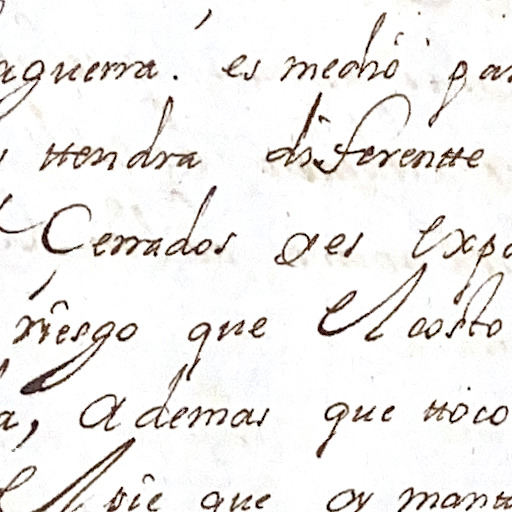 aguerra. es medio par
ttendra diferentte
Cerrados o es expo
riesgo que el costo
a, Ademas que ttoco
el pie que oy mantt